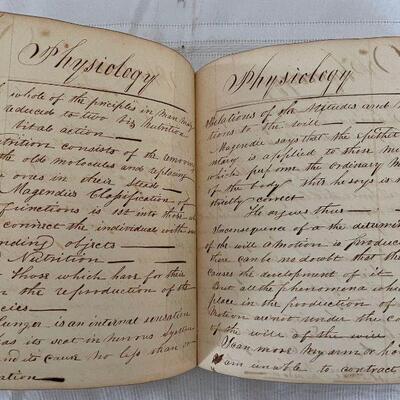 Physiology
whole of the principles in Man may
reduced to two viz Nutrition
Vital action
utrition consists of the
the old molecules and replacing
ones in their stead
Magendies Classification of
functions is 1st into those
connect the individuals with
nding objects
Nutrition
Those which have for their
the reproduction of the
ecies
unger is an internal sensation
as its seat in nervous System
nd its cause no less than
ation
Physiology
Relations of the Attitudes and
tions to the will
Magendie says that the Epithet
tary is applied to those
which perform the ordinary
of the body this he says is
strictly correct
He argues thus
Inconsequence of a the determin
of the will a motion is produce
there can be no doubt that the
causes the development of it
But all the phenomena whi
place in the production of
Motion are not under the co
of the will of the will
I can move my arm or ho
I am unable to contract